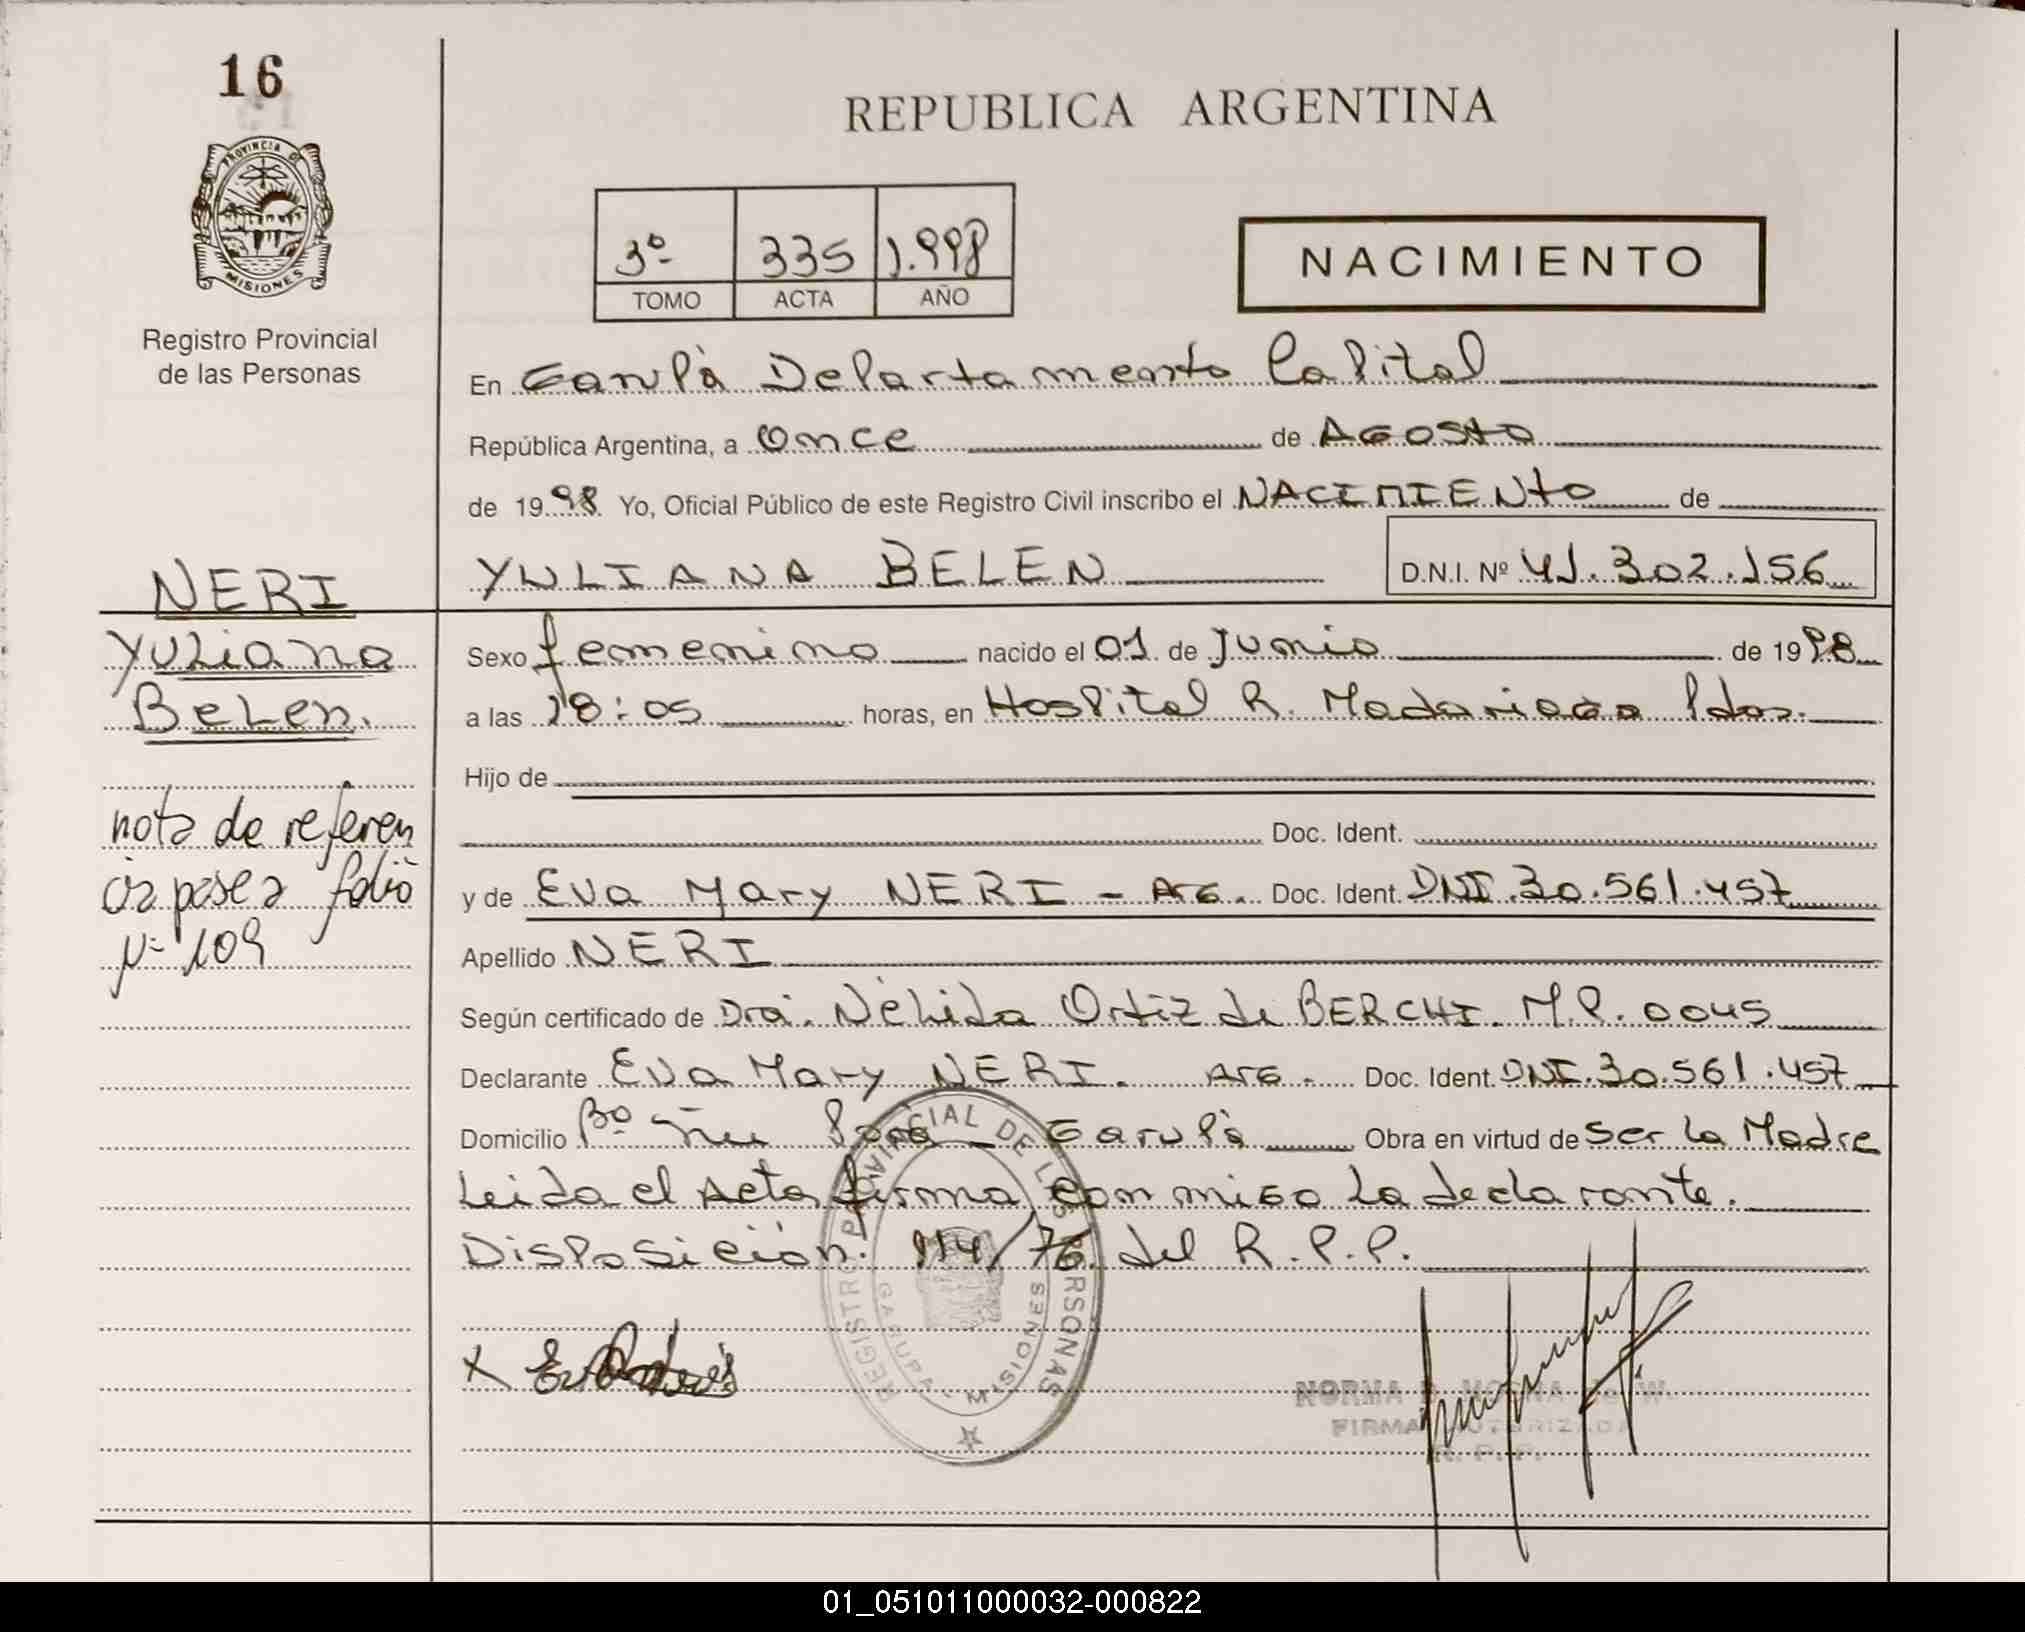 16
PROVINCIA DE
MISIONES
Registro Provincial
de las Personas
REPUBLICA ARGENTINA
3º 335 1.998
TOMO ACTA AÑO
NACIMIENTO
En Garupà Departamento Capital
República Argentina, a once de Agosto
de 1998 Yo, Oficial Público de este Registro Civil inscribo el NACIMIENTO de
YULIANA BELEN D.N.I. Nº 41.302.156
NERI
Yuliana
Belen.
nota de referen
cia pase a folio
Nº 109
Sexo femenino nacido el 01 de Junio de 1998
a las 18:05 horas, en Hospital R. Madariaga Pdas.
Hijo de
Doc. Ident.
y de Eva Mary NERI - Arg. Doc. Ident. DNI.30.561.457
Apellido NERI
Según certificado de Dra. Nélida Ortiz de BERCHI. M.P. 0045
Declarante Eva Mary NERI. Arg. Doc. Ident. DNI.30.561.457
Domicilio Bº Ñu Porá - Garupà Obra en virtud de ser la Madre
Leida el Acta firma conmigo la declarante.
Disposición. 114/76 del R.P.P.
REGISTRO PROVINCIAL DE LAS PERSONAS
GARUPA - MISIONES
X
NORMA
FIRMA AUTORIZADA
R. P. P.
01_051011000032-000822